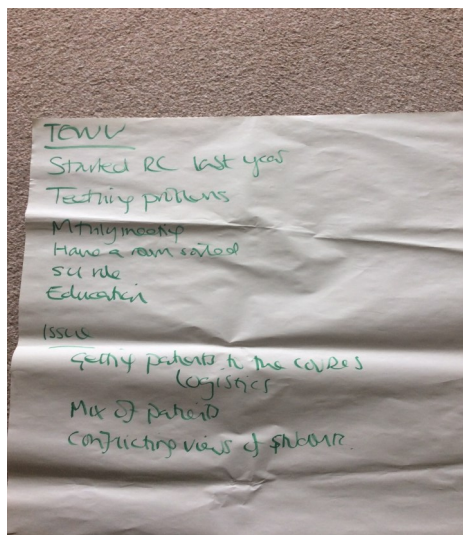 TEWV
Started RC last year
Teething problems
Mthly meeting
Have a room called
Education
Issue
Getting patients to the courses
logistics
Mix of patients
Conflicting views of